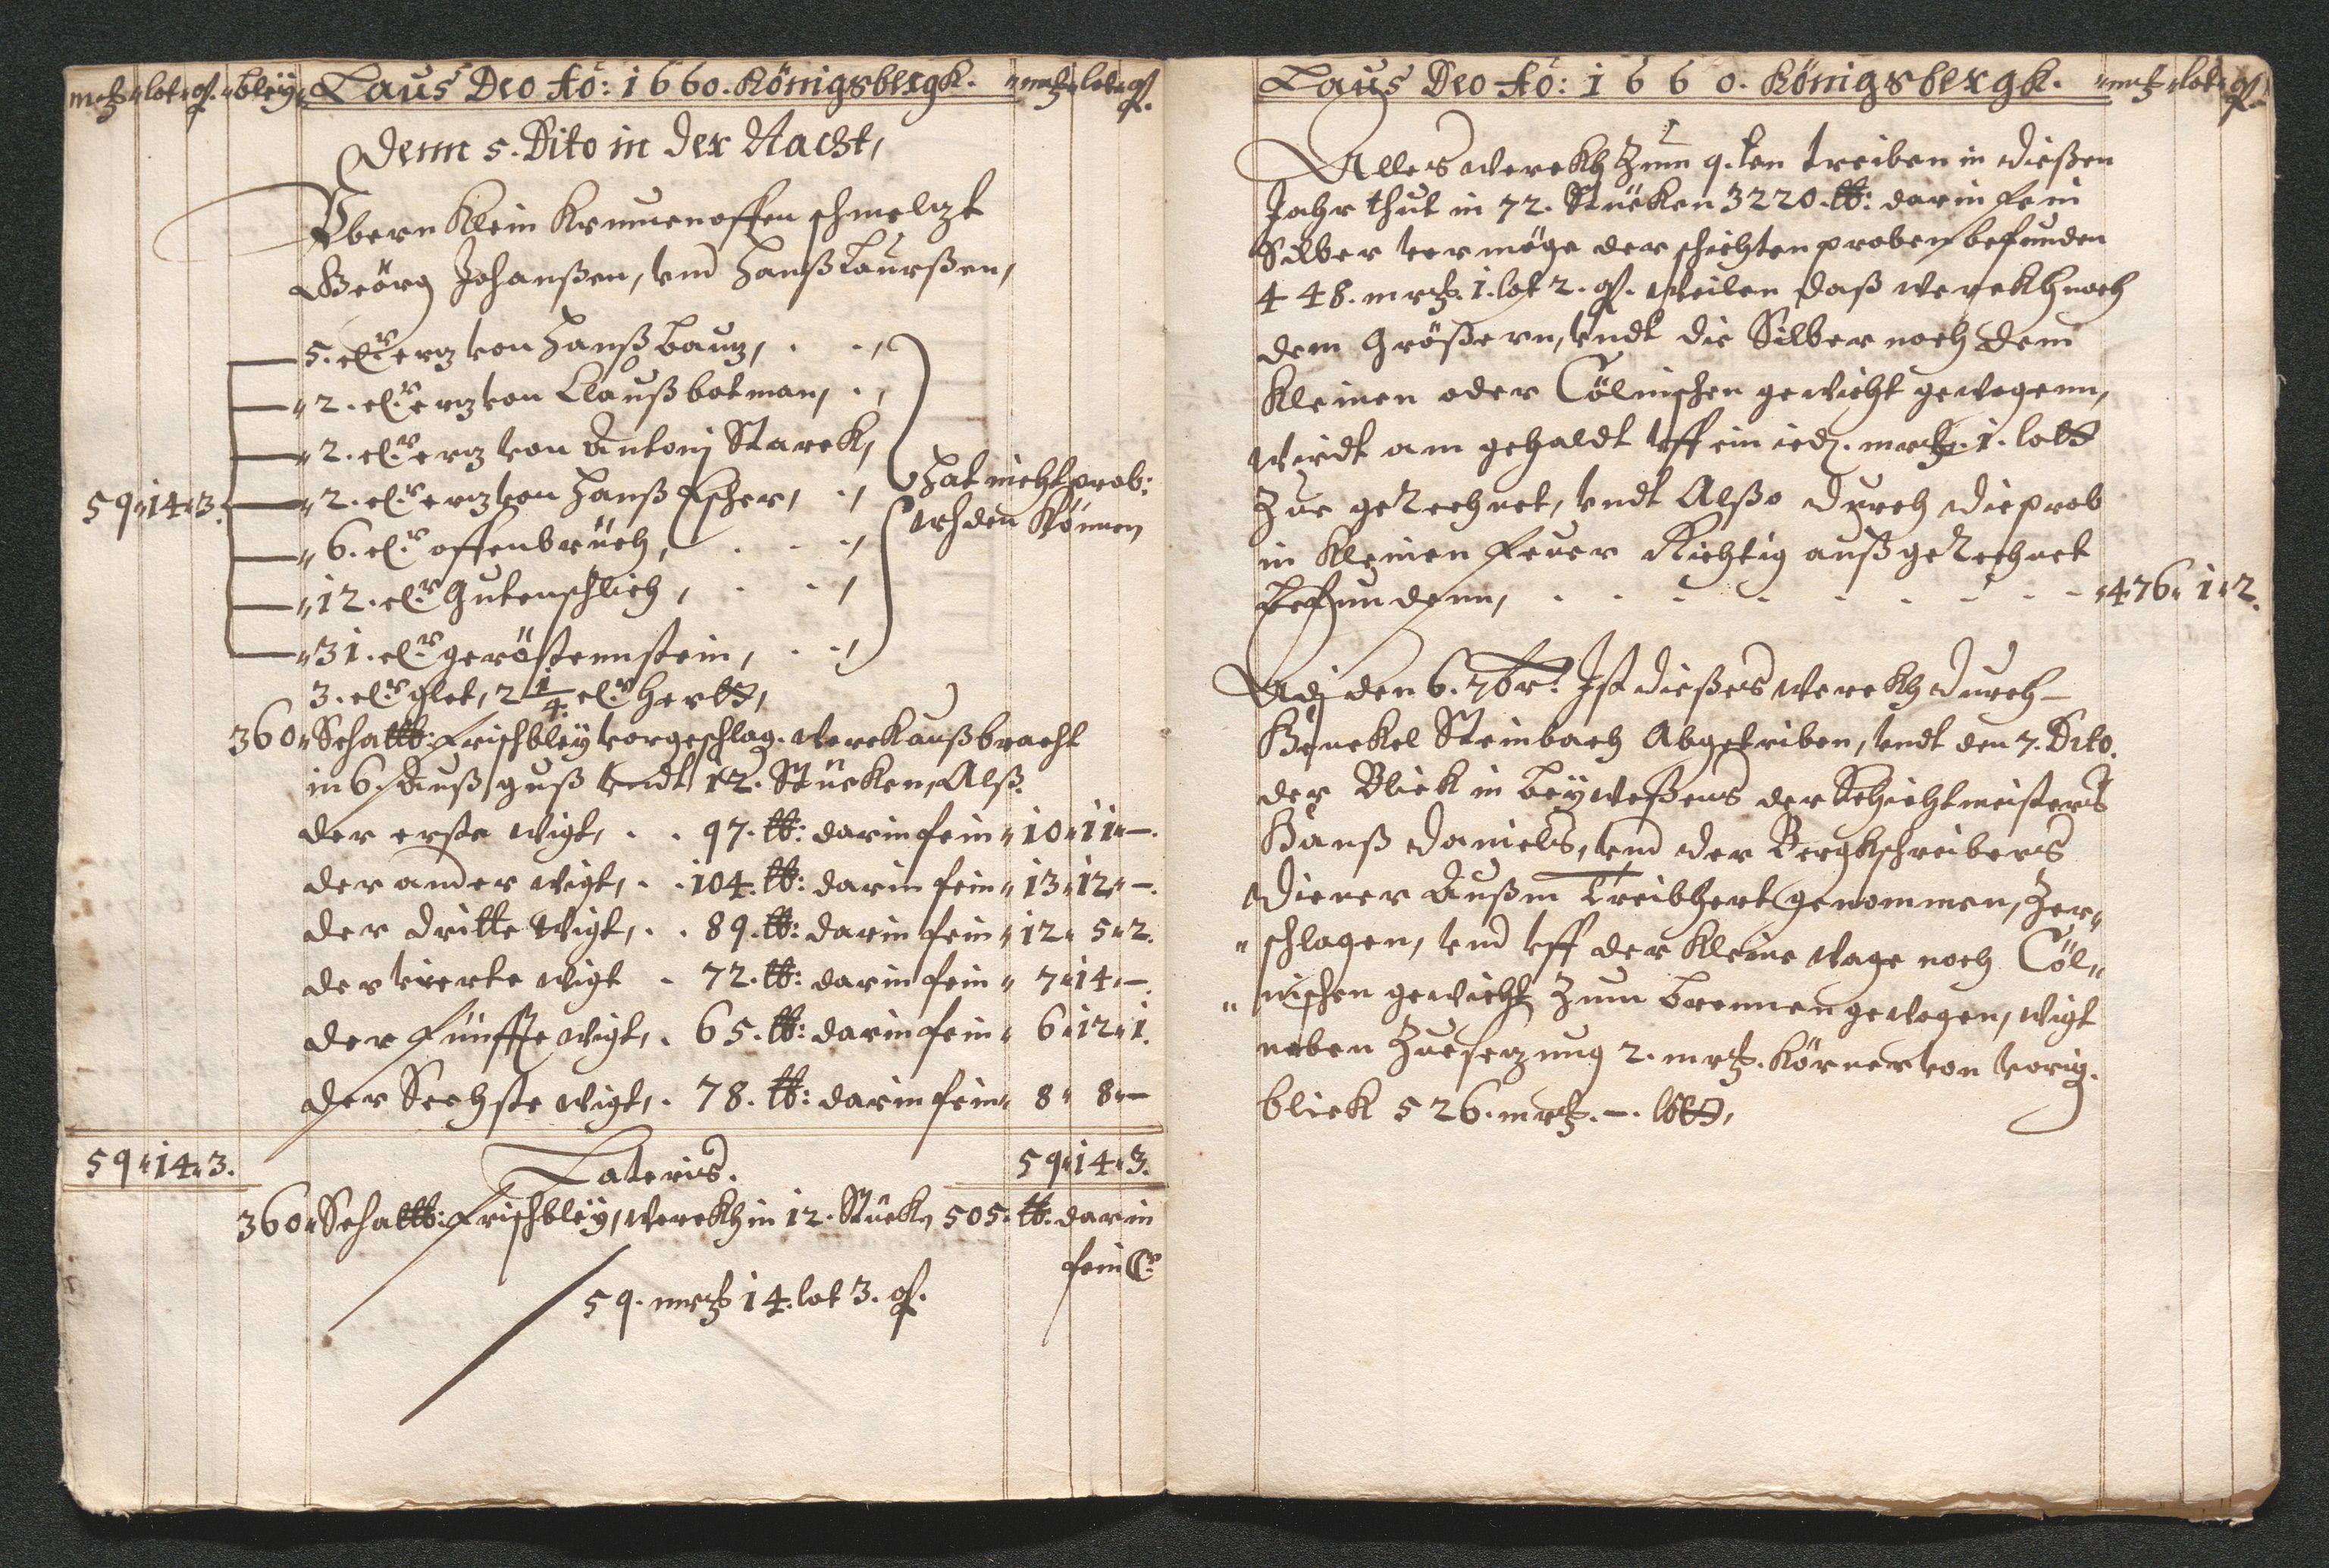 mrk lot q. bleÿ Laus Deo Aō: 1660. Königsbergk. mrk lot q.
Denn 5. Dito in der Nacht,
Vbern Klein Krummenoffen schmelzt
Geörg Johanßen, vnd Hanß Laurßen,
5. Ctr erz von Hanß bauz,
2. Ctr erz von Claußbotman,
2. Ctr erz von Antonj Starck,
59 14 3. 2. Ctr erz von Hanß Escher, Hat nicht prob:
6. Ctr offenbrüch, irh den Können
12. Ctr Gutenschlich,
31. Ctr geröstennstein,
3. Ctr glet, 2 1/4. Ctr hertt,
360 Scha ℔: frischbleÿ vorgeschlag. werck außbracht
in 6. Außguß vndt 12. Stücken, Alß
der erste wigt, 97. ℔: darin fein 10 11 –.
der ander wigt, 104. ℔: darin fein 13 12 –.
der dritte wigt, 89. ℔: darin fein 12 5 2.
der vierte wigt 72. ℔: darin fein 7 14 –.
der fünffte wigt, 65. ℔: darin fein 6 12 1.
der Sechste wigt, 78. ℔: darin fein 8 8 –
59 14 3. Lateris. 59 14 3.
360 Scha ℔: frischbleÿ, werckh in 12. Stück, 505. ℔. darin
fein
59. mrk 14. lot 3. q.
Laus Deo Aō: 1660. Königsbergk. mrk lot q.
Alles werckh Zum 9.ten treiben in dießen
Jahr thut in 72. Stücken 3220. ℔: darin fein
Silber vermöge der schichten proben befunden
448. mrk. 1. lot 2. q. weilen daß werckh noch
dem Größern, vndt die Silber noch dem
Kleinen oder Cölnischen gewicht gewogenn,
wirdt am gehaldt vff ein ied. mrk. 1. lott
Zue gerechnet, vndt Alßo durch die prob
in Kleinen feuer Richtig außgerechnet
befundenn, 476 1 2.
Adj den 6. 7br. Ist dießes werckh durch
Hänckel Steinbach Abgetriben, vndt den 7. Dito.
der Blick in beÿweßens der Schichtmeisters
Hanß Daniels, vnd der Bergkschreibers
Diener Außm Treibhert genommen, Zer„
„schlagen, vnd vff der Kleine wage noch Cöl„
„nischen gewicht Zum brennen gewogen, wigt
neben Zuesezung 2. mrk. Körner von vorig.
blick 526. mrk. –. lott,